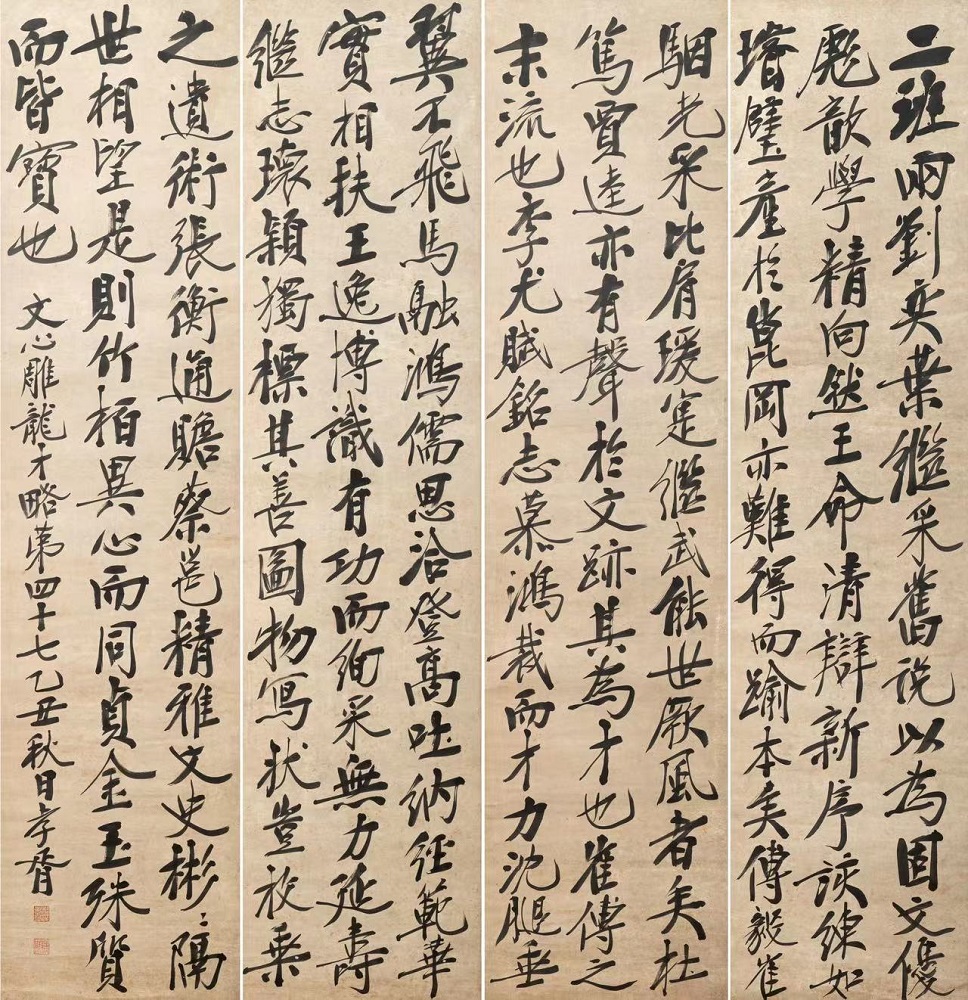 二班兩劉奕業繼采舊說以為固文優
彪歆學精向然王命清辯新序該練如
璿璧產於崑岡亦難得而踰本矣傅毅崔
駰光采比肩瑗寔繼武能世厥風者矣杜
篤賈逵亦有聲於文跡其為才也崔傅之
末流也李尤賦銘志慕鴻裁而才力沈膇垂
翼不飛馬融鴻儒思洽登高吐納經範華
實相扶王逸博識有功而絢采無力延壽
繼志瓌穎獨標其善圖物寫狀豈枚乘
之遺術張衡通贍蔡邕精雅文史彬〻隔
世相望是則竹柏異心而同貞金玉殊質
而皆寶也
文心雕龍才略第四十七乙丑秋日孝胥